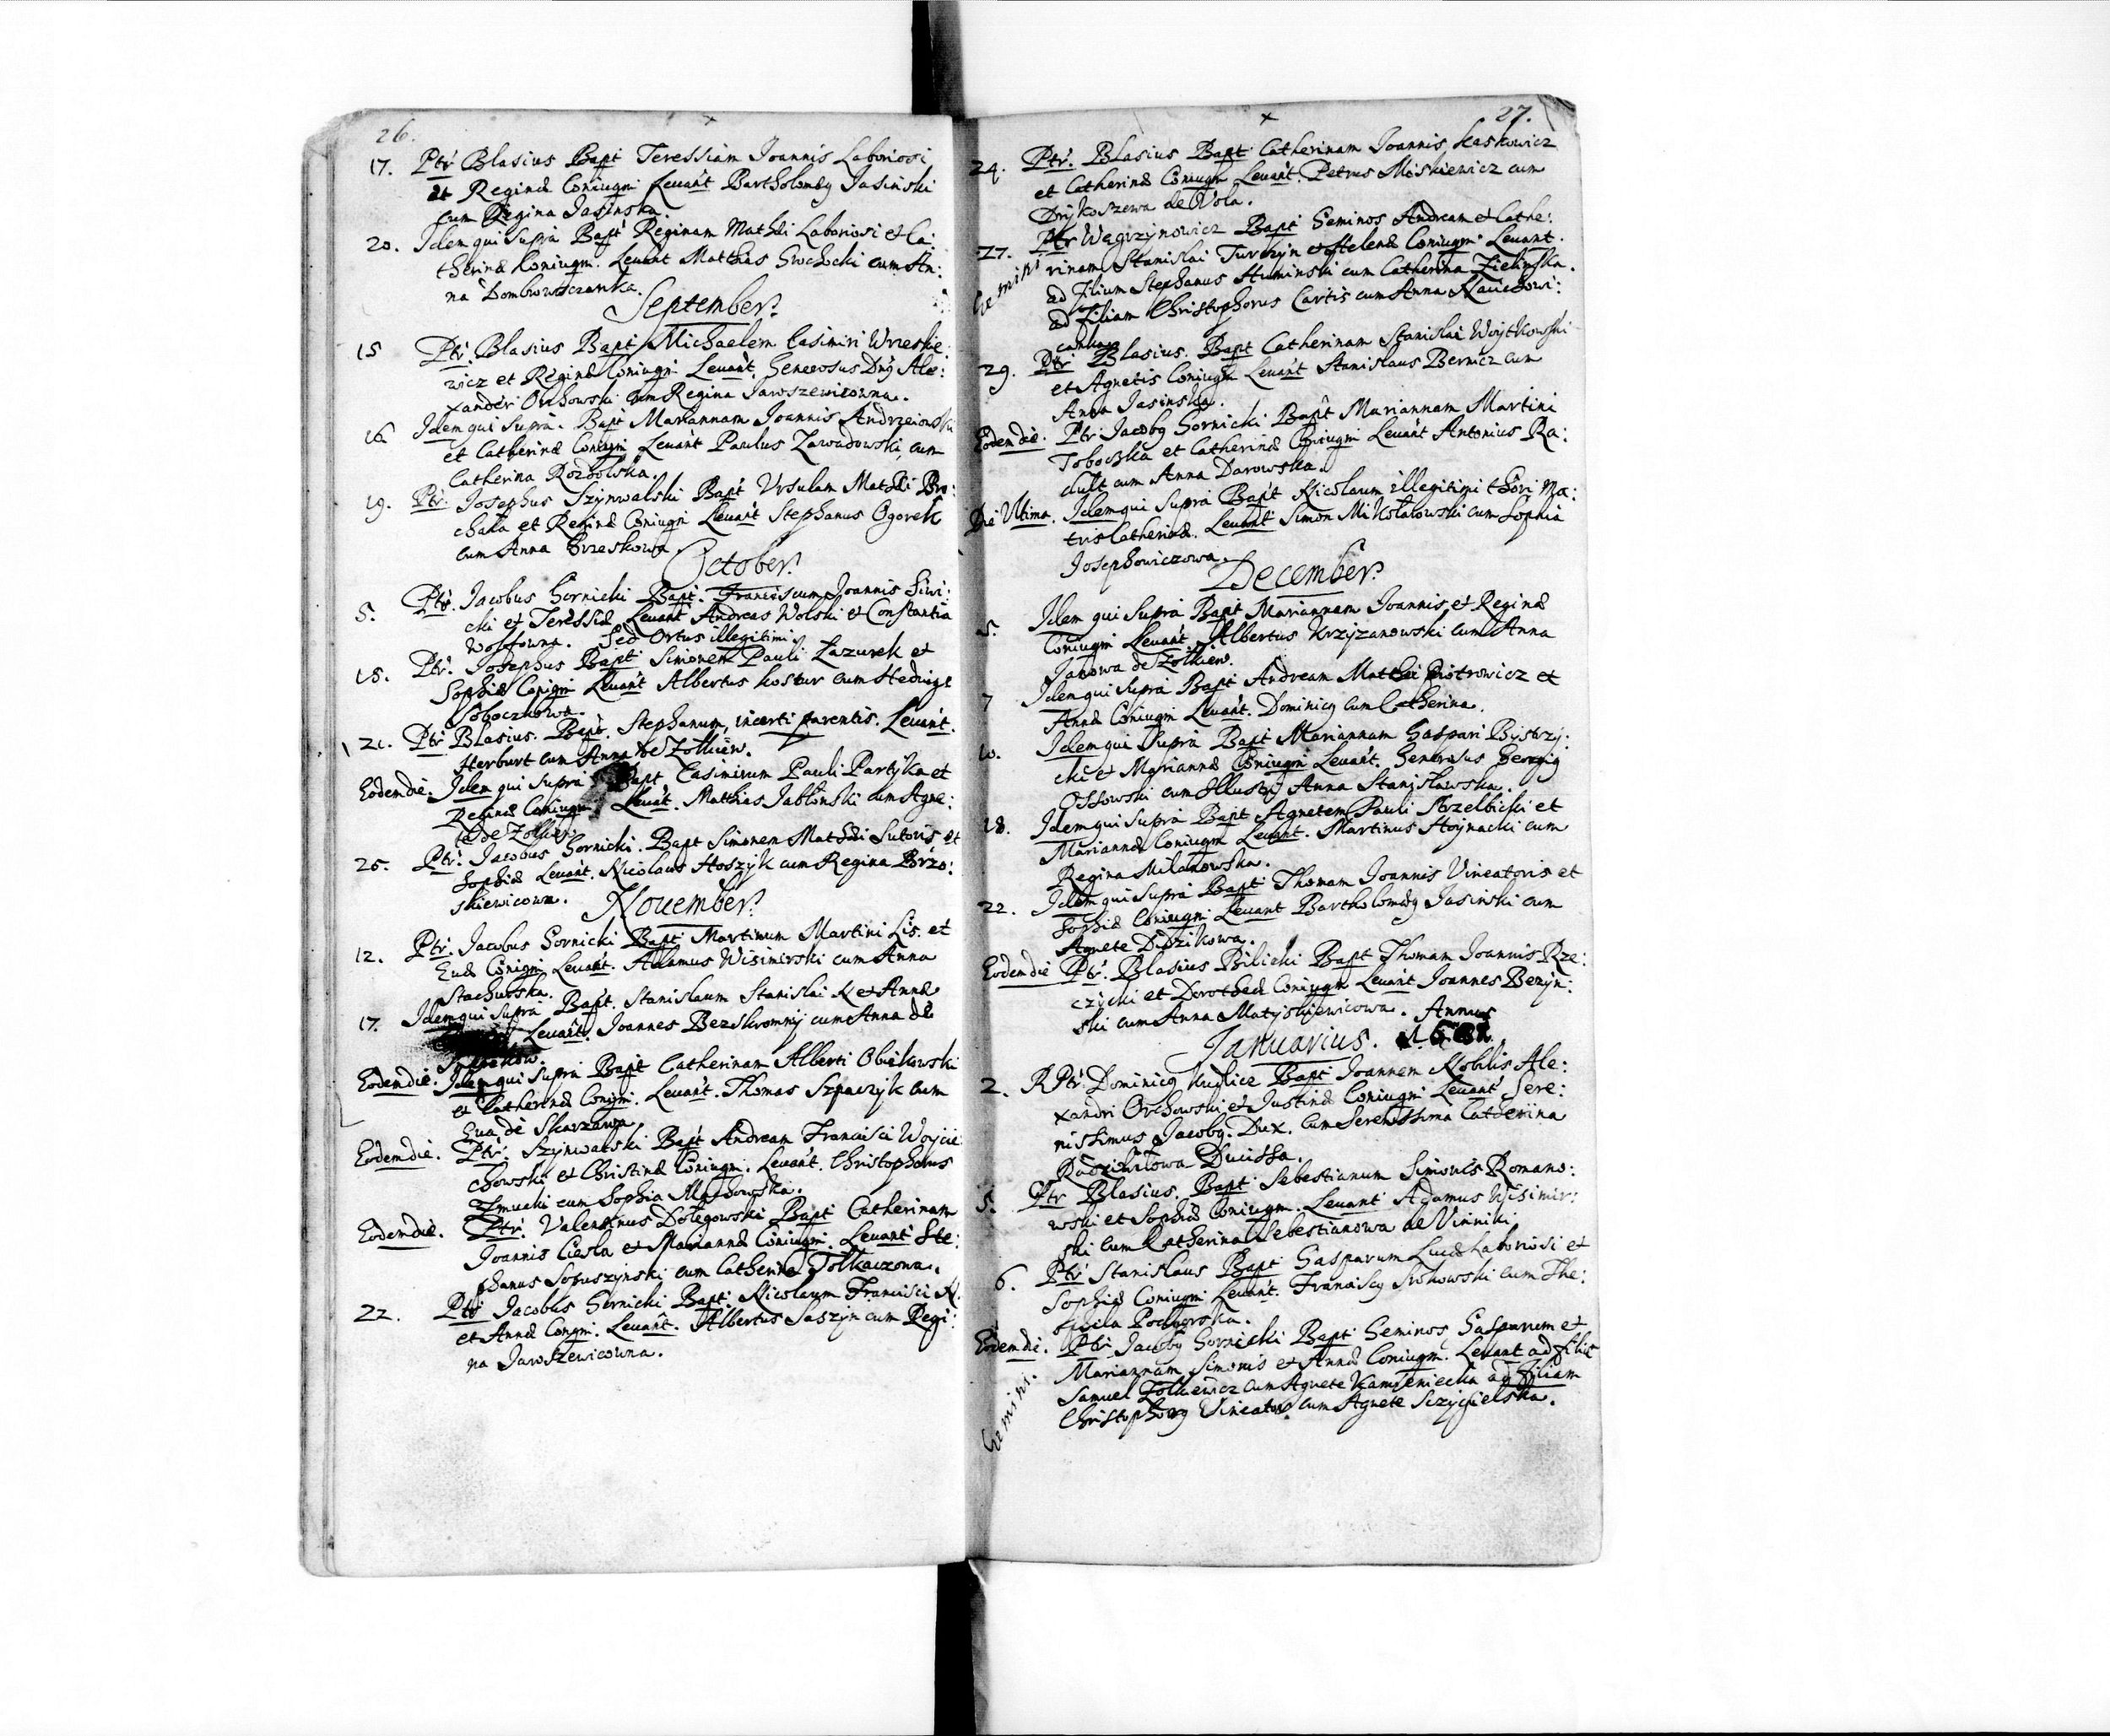 26.
17. Ptr Blasius Bapt Teressiam Joannis Laboriosi
et Reginæ Coniugm Leuant Bartholomẏ Jasinski
cum Regina Jasinska.
20. Idem qui supra Bapt Reginam Mathæi Laboriosi et Ca:
therinæ Coniugm. Leuant Matthias Grochocki cum An:
na Dombrowsczanka.
September.
15 Ptr. Blasius Bapt Michaelem Casimiri Wrzeske:
wicz et Reginæ Coniugm Leuant. Generosus Dnỹ Ale:
xander Orchowski cum Regina Jaroszewicowna.
16 Idem qui Supra. Bapt Mariannam Joannis Andrzeiowski
et Catherinæ Coniugm Leuant Paulus Zawadowski, cum
Catherina Rozdolska.
19. Ptr. Josephus Szynwalski Bapt Vrsulam Mathæi Pro:
chala et Reginæ Coniugm Leuant Stephanus Ogorek
cum Anna Brzeskowa
October.
5. Ptr. Jacobus Gornicki Bapt. Franciscum Joannis Siwi:
cki et Teressiæ Leuant Andreas Wolski et Constantia
Wolfowna. Sed Ortus illegitimi
15. Ptr. Josephus Bapt Simonem Pauli Lazurek et
Sophiæ Conigm Leuant Albertus Kostur cum Hedvige
Soboczkowa.
21. Ptr Blasius. Bapt. Stephanum, incerti parentis. Leuant.
Herburt cum Anna de Zolkiew.
Eodem die. Idem qui supra Bapt Casimirum Pauli Partyka et
Reginæ Coniugm Leuat. Matthias Jablonski cum Agne:
te de Zolkiew.
26. Ptr. Jacobus Gornicki. Bapt Simonem Mathæi Sutoris et
Sophiæ Leuant. Nicolaus Hoszyk cum Regina Brzo:
skiewicowa.
November.
12. Ptr. Jacobus Gornicki Bapt Martinum Martini Lis. et
Euæ Conigm Leuant. Adamus Wisimirski cum Anna
Stachurska.
17. Idem qui supra Bapt. Stanislaum Stanislai N et Annæ
Leuant. Joannes Bezskromny cum Anna de
Eodem die. Idem qui supra Bapt Catherinam Alberti Obiekowski
et Catherinæ Conigm. Leuant. Thomas Szpaczyk cum
Eua de Skwarzawa
Eodem die. Ptr. Szynwalski Bapt Andream Francisci Woycie
chowski et Christinæ Coniugm. Leuant. Christophorus
Zmucki cum Sophia Machowska.
Eodem die. Ptr. Valentinus Dolegowski Bapt Catherinam
Joannis Ciesla et Mariannæ Coniugm. Leuant Ste:
phanus Sobuszynski cum Catherina Tolkaczowa.
22. Ptr Jacobus Gornicki Bapt. Nicolaum Francisci N.
et Annæ Congm. Leuant. Albertus Saszyn cum Regi:
na Jaroszewicowna.
27.
24. Ptr. Blasius Bapt Catherinam Joannis Laskowicz
et Catherinæ Coniugm Leuant. Petrus Miskiewicz cum
Drykoszewa de Wola.
27. Ptr Węgrzynowicz Bapt Geminos Andream et Cathe:
Gemini rinam Stanislai Turczyn et Helenæ Coniugm Leuant.
ad filium Stephanus Huminski cum Catherina Zielinska.
ad Filiam Christophorus Cartis cum Anna
29. Ptr Blasius. Bapt Catherinam Stanislai Woytkowski
et Agnetis Coniugm Leuant Stanislaus Bernicz cum
Anna Jasinska.
Eodem die. Ptr. Jacobẏ Gornicki Bapt Mariannam Martini
Toboczka et Catherinæ Coniugm Leuant Antonius Ra:
dult cum Anna Darowska.
Die Vltima. Idem qui supra Bapt Nicolaum illegitimi thori Ma:
tris Catherinæ. Leuant Simon Mikolaiowski cum Sophia
Josephowiczowa.
December.
5. Idem qui supra Bapt Mariannam Joannis et Reginæ
Coniugm Leuant. Albertus Krzyzanowski cum Anna
Janowa de Zolkiew.
7 Idem qui supra Bapt Andream Matthæi Piotrowicz et
Annæ Coniugm Leuant. Dominicẏ cum Catherina.
10. Idem qui supra Bapt Mariannam Gaspari Bystrzy:
cki et Mariannæ Coniugm Leuant. Generosus Georgiẏ
Ossowski cum Illustri Anna Stanislawska.
18. Idem qui supra Bapt Agnetem Pauli Strzelbicki et
Mariannæ Coniugm Leuant. Martinus Hoynacki cum
Regina Milanowska.
22. Idem qui supra Bapt Thomam Joannis Vineatoris et
Sophiæ Coniugm Leuant Bartholomẏ Jasinski cum
Agnete Dudzikowa.
Eodem die Ptr. Blasius Bilicki Bapt Thomam Joannis Rze:
czycki et Dorotheæ Coniugm Leuant Joannes Bezyn:
ski cum Anna Matyskiewicowa. Annus
Januarius. 1681.
2. R Ptr. Dominicẏ Kuplice Bapt Joannem Nobilis Ale:
xandri Orchowski et Justinæ Coniugm Leuant Sere:
nissimus Jacobẏ. Dux. cum Serenissima Catherina
Radziwilowa Ducissa.
5. Ptr Blasius. Bapt Sebestianum Simonis Romano:
wski et Sophiæ Coniugm. Leuant Adamus Wisimir:
ski cum Catherina Sebestianowa de Vinniki
6. Ptr Stanislaus Bapt Gasparum Lucæ Laboriosi et
Sophiæ Coniugm Leuant. Franciscẏ Srokowski cum The:
ophila Podhorska.
Eodem die. Ptr Jacobẏ Gornicki Bapt Geminos Gasparum et
Gemini. Mariannam Simonis et Annæ Coniugm. Leuant ad filiu
Samuel Zolkiewicz cum Agnete Kamieniecka ad Filiam
Christophorẏ Vineator cum Agnete Sczycielska.